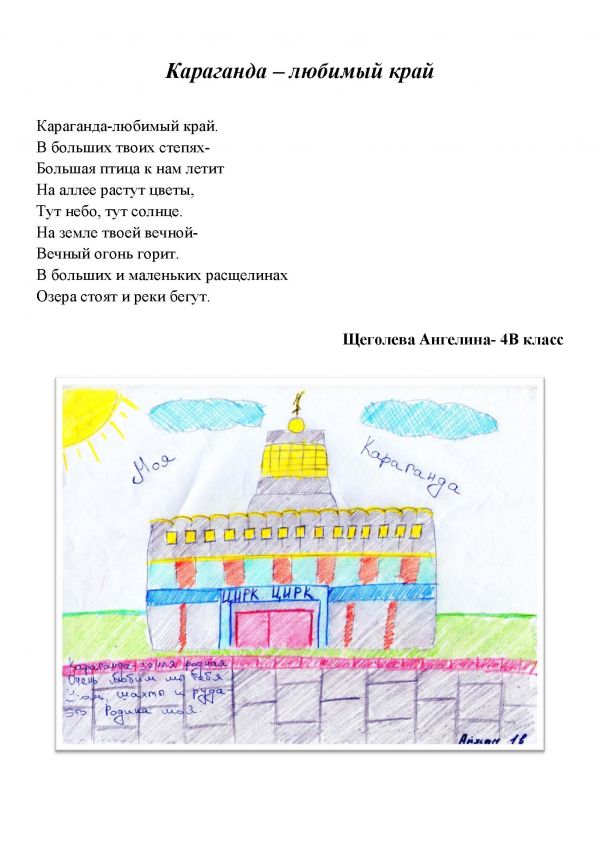 Караганда – любимый край
Караганда-любимый край.
В больших твоих степях-
Большая птица к нам летит
На аллее растут цветы,
Тут небо, тут солнце.
На земле твоей вечной-
Вечный огонь горит.
В больших и маленьких расщелинах
Озера стоят и реки бегут.
Щеголева Ангелина- 4В класс
Моя Караганда
ЦИРК ЦИРК
Караганда-земля родная
Очень любим мы тебя
шахты и руда
Родина моя
Айжан 1в